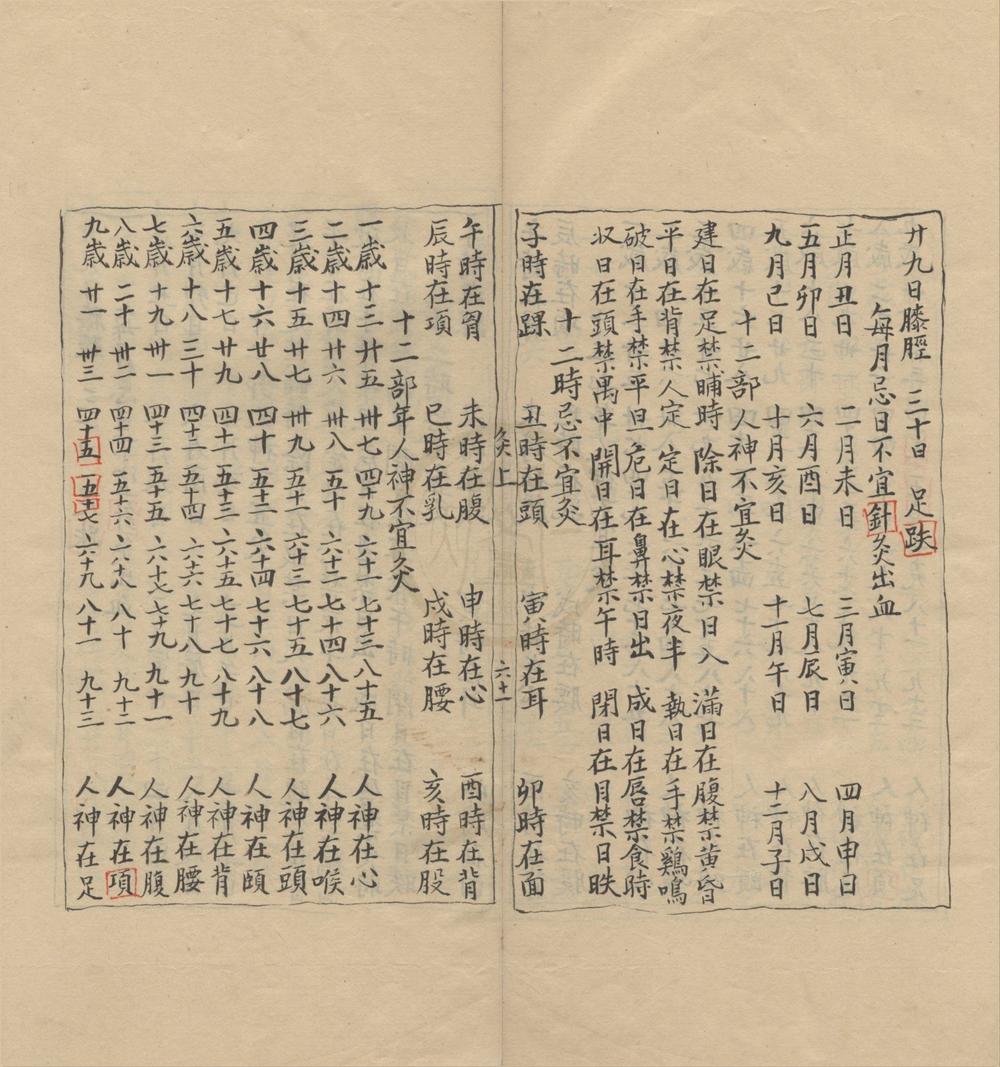 廿九日膝脛　三十日　足趺
每月忌日不宜針灸出血
正月丑日　二月未日　三月寅日　四月申日
五月卯日　六月酉日　七月辰日　八月戌日
九月巳日　十月亥日　十一月午日　十二月子日
十二部人神不宜灸
建日在足禁晡時　除日在眼禁日入　滿日在腹禁黃昏
平日在背禁人定　定日在心禁夜半　執日在手禁鷄鳴
破日在手禁平旦　危日在鼻禁日出　成日在唇禁食時
收日在頭禁禺中　開日在耳禁午時　閉日在目禁日昳
十二時忌不宜灸
子時在踝　丑時在頭　寅時在耳　卯時在面
灸上　六十一
辰時在項　巳時在乳　午時在胷　未時在腹　申時在心　酉時在背
戌時在腰　亥時在股
十二部年人神不宜灸
一歲　十三　廿五　卅七　四十九　六十一　七十三　八十五　人神在心
二歲　十四　廿六　卅八　五十　六十二　七十四　八十六　人神在喉
三歲　十五　廿七　卅九　五十一　六十三　七十五　八十七　人神在頭
四歲　十六　廿八　四十　五十二　六十四　七十六　八十八　人神在頤
五歲　十七　廿九　四十一　五十三　六十五　七十七　八十九　人神在背
六歲　十八　三十　四十二　　六十六　七十八　九十　人神在腰
七歲　十九　卅一　四十三　五十五　六十七　七十九　九十一　人神在腹
八歲　二十　卅二　四十四　五十六　六十八　八十　九十二　人神在項
九歲　廿一　卅三　四十五　五十七　六十九　八十一　九十三　人神在足